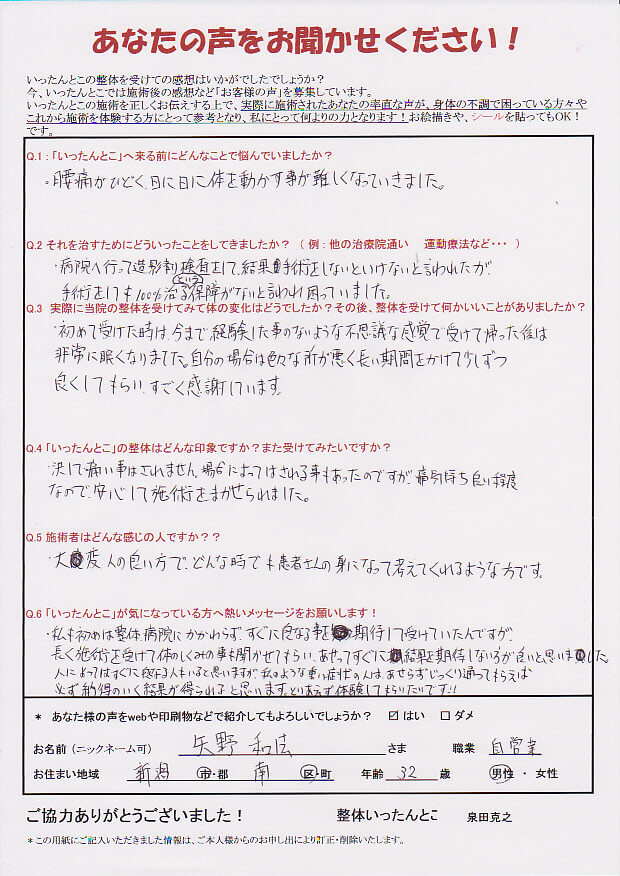 あなたの声をお聞かせください！
いったんとこの整体を受けての感想はいかがでしたでしょうか？
今、いったんとこでは施術後の感想など「お客様の声」を募集しています。
いったんとこの施術を正しくお伝えする上で、実際に施術されたあなたの率直な声が、身体の不調で困っている方々や
これから施術を体験する方にとって参考となり、私にとって何よりの力となります！お絵描きや、シールを貼ってもOK！
です。
Q.1：「いったんとこ」へ来る前にどんなことで悩んでいましたか？
・腰痛がひどく、日に日に体を動かす事が難しくなっていきました。
Q.2 それを治すためにどういったことをしてきましたか？（例：他の治療院通い　運動療法など・・・）
・病院へ行って造影剤検査をして、結果手術をしないといけないと言われたが
手術をしても100%治るという保障がないと言われ困っていました。
Q.3 実際に当院の整体を受けてみて体の変化はどうでしたか？その後、整体を受けて何かいいことがありましたか？
・初めて受けた時は、今まで経験した事のないような不思議な感覚で受けて帰った後は
非常に眠くなりました。自分の場合は色々な所が悪く長い期間をかけて少しずつ
良くしてもらい、すごく感謝しています。
Q.4「いったんとこ」の整体はどんな印象ですか？また受けてみたいですか？
・決して痛い事はされません。場合によってはされる事もあったのですが、痛気持ち良い程度
なので、安心して施術をまかせられました。
Q.5 施術者はどんな感じの人ですか？？
・大変人の良い方で、どんな時でも患者さんの身になって考えてくれるような方です。
Q.6「いったんとこ」が気になっている方へ熱いメッセージをお願いします！
・私も初めは整体、病院にかかわらず、すぐに良くなる事を期待して受けていたんですが、
長く施術を受けて体のしくみの事も聞かせてもらい、あせってすぐに結果を期待しない方が良いと思いました。
人によってはすぐに良くなる人もいると思いますが、私のような重い症状の人は、あせらずじっくり通ってもらえば
必ず納得のいく結果が得られると思います。とりあえず体験してもらいたいです!!
＊ あなた様の声をwebや印刷物などで紹介してもよろしいでしょうか？　☑はい　□ダメ
お名前（ニックネーム可）　矢野 和宏　さま　職業　自営業
お住まい地域　新潟　市・郡　南　区・町　年齢　32　歳　男性・女性
ご協力ありがとうございました！　整体いったんとこ　泉田克之
＊この用紙にご記入いただきました情報は、ご本人様からのお申し出により訂正・削除いたします。